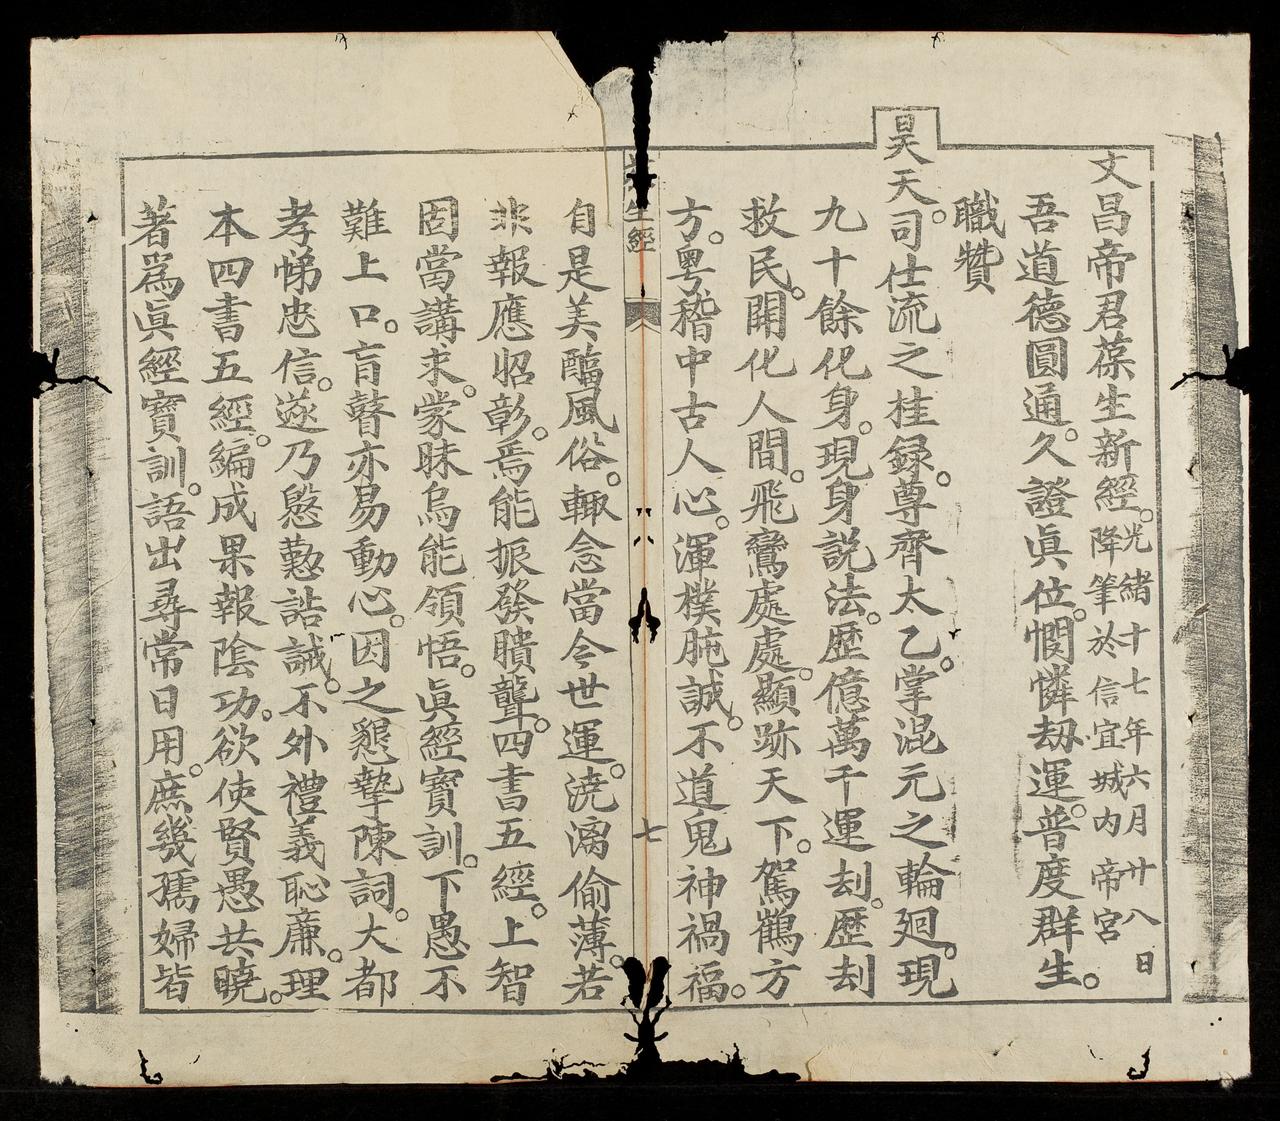 文昌帝君葆生新經。光緒十七年六月廿八日
降筆於信宜城內帝宮
吾道德圓通。久證眞位。憫憐刼運。普度群生。
職贊
昊天。司仕流之桂録。尊齊太乙。掌混元之輪廻。現
九十餘化身。現身說法。歷億萬千運刦。歷刦
救民。開化人間。飛鸞處處。顯跡天下。駕鶴方
方。粤稽中古人心。渾樸肫誠。不道鬼神禍福。
生經
七
自是美醨風俗。輙念當今世運。澆漓偷薄。若
非報應昭彰。焉能振發瞶聾。四書五經。上智
固當講求。蒙昧烏能領悟。眞經寳訓。下愚不
難上口。盲瞽亦易動心。因之懇摯陳詞。大都
孝悌忠信。遂乃慇懃誥誡。不外禮義恥廉。理
本四書五經。編成果報陰功。欲使賢愚共曉。
著爲眞經寳訓。語出尋常日用。庶幾孺婦皆